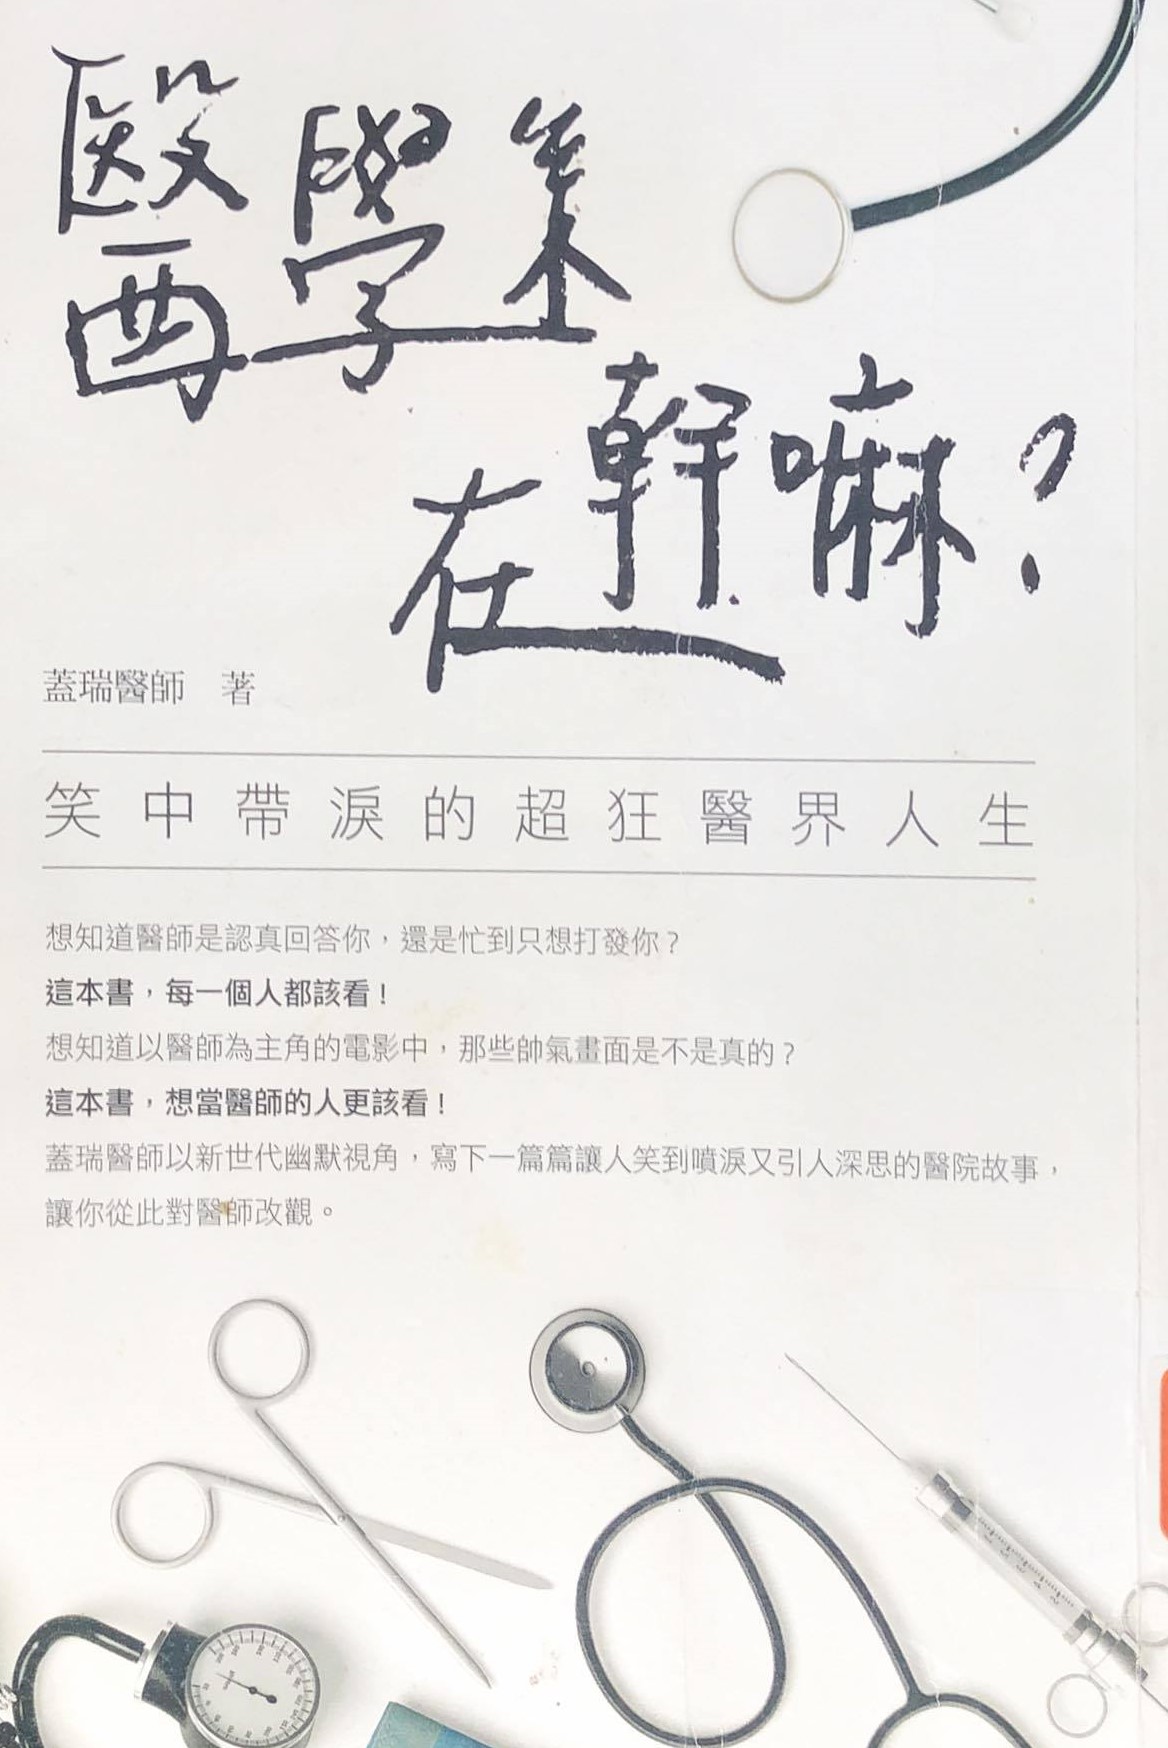 醫學系
在幹嘛?
蓋瑞醫師 著
笑中帶淚的超狂醫界人生
想知道醫師是認真回答你,還是忙到只想打發你?
這本書,每一個人都該看!
想知道以醫師為主角的電影中,那些帥氣畫面是不是真的?
這本書,想當醫師的人更該看!
蓋瑞醫師以新世代幽默視角,寫下一篇篇讓人笑到噴淚又引人深思的醫院故事,
讓你從此對醫師改觀。